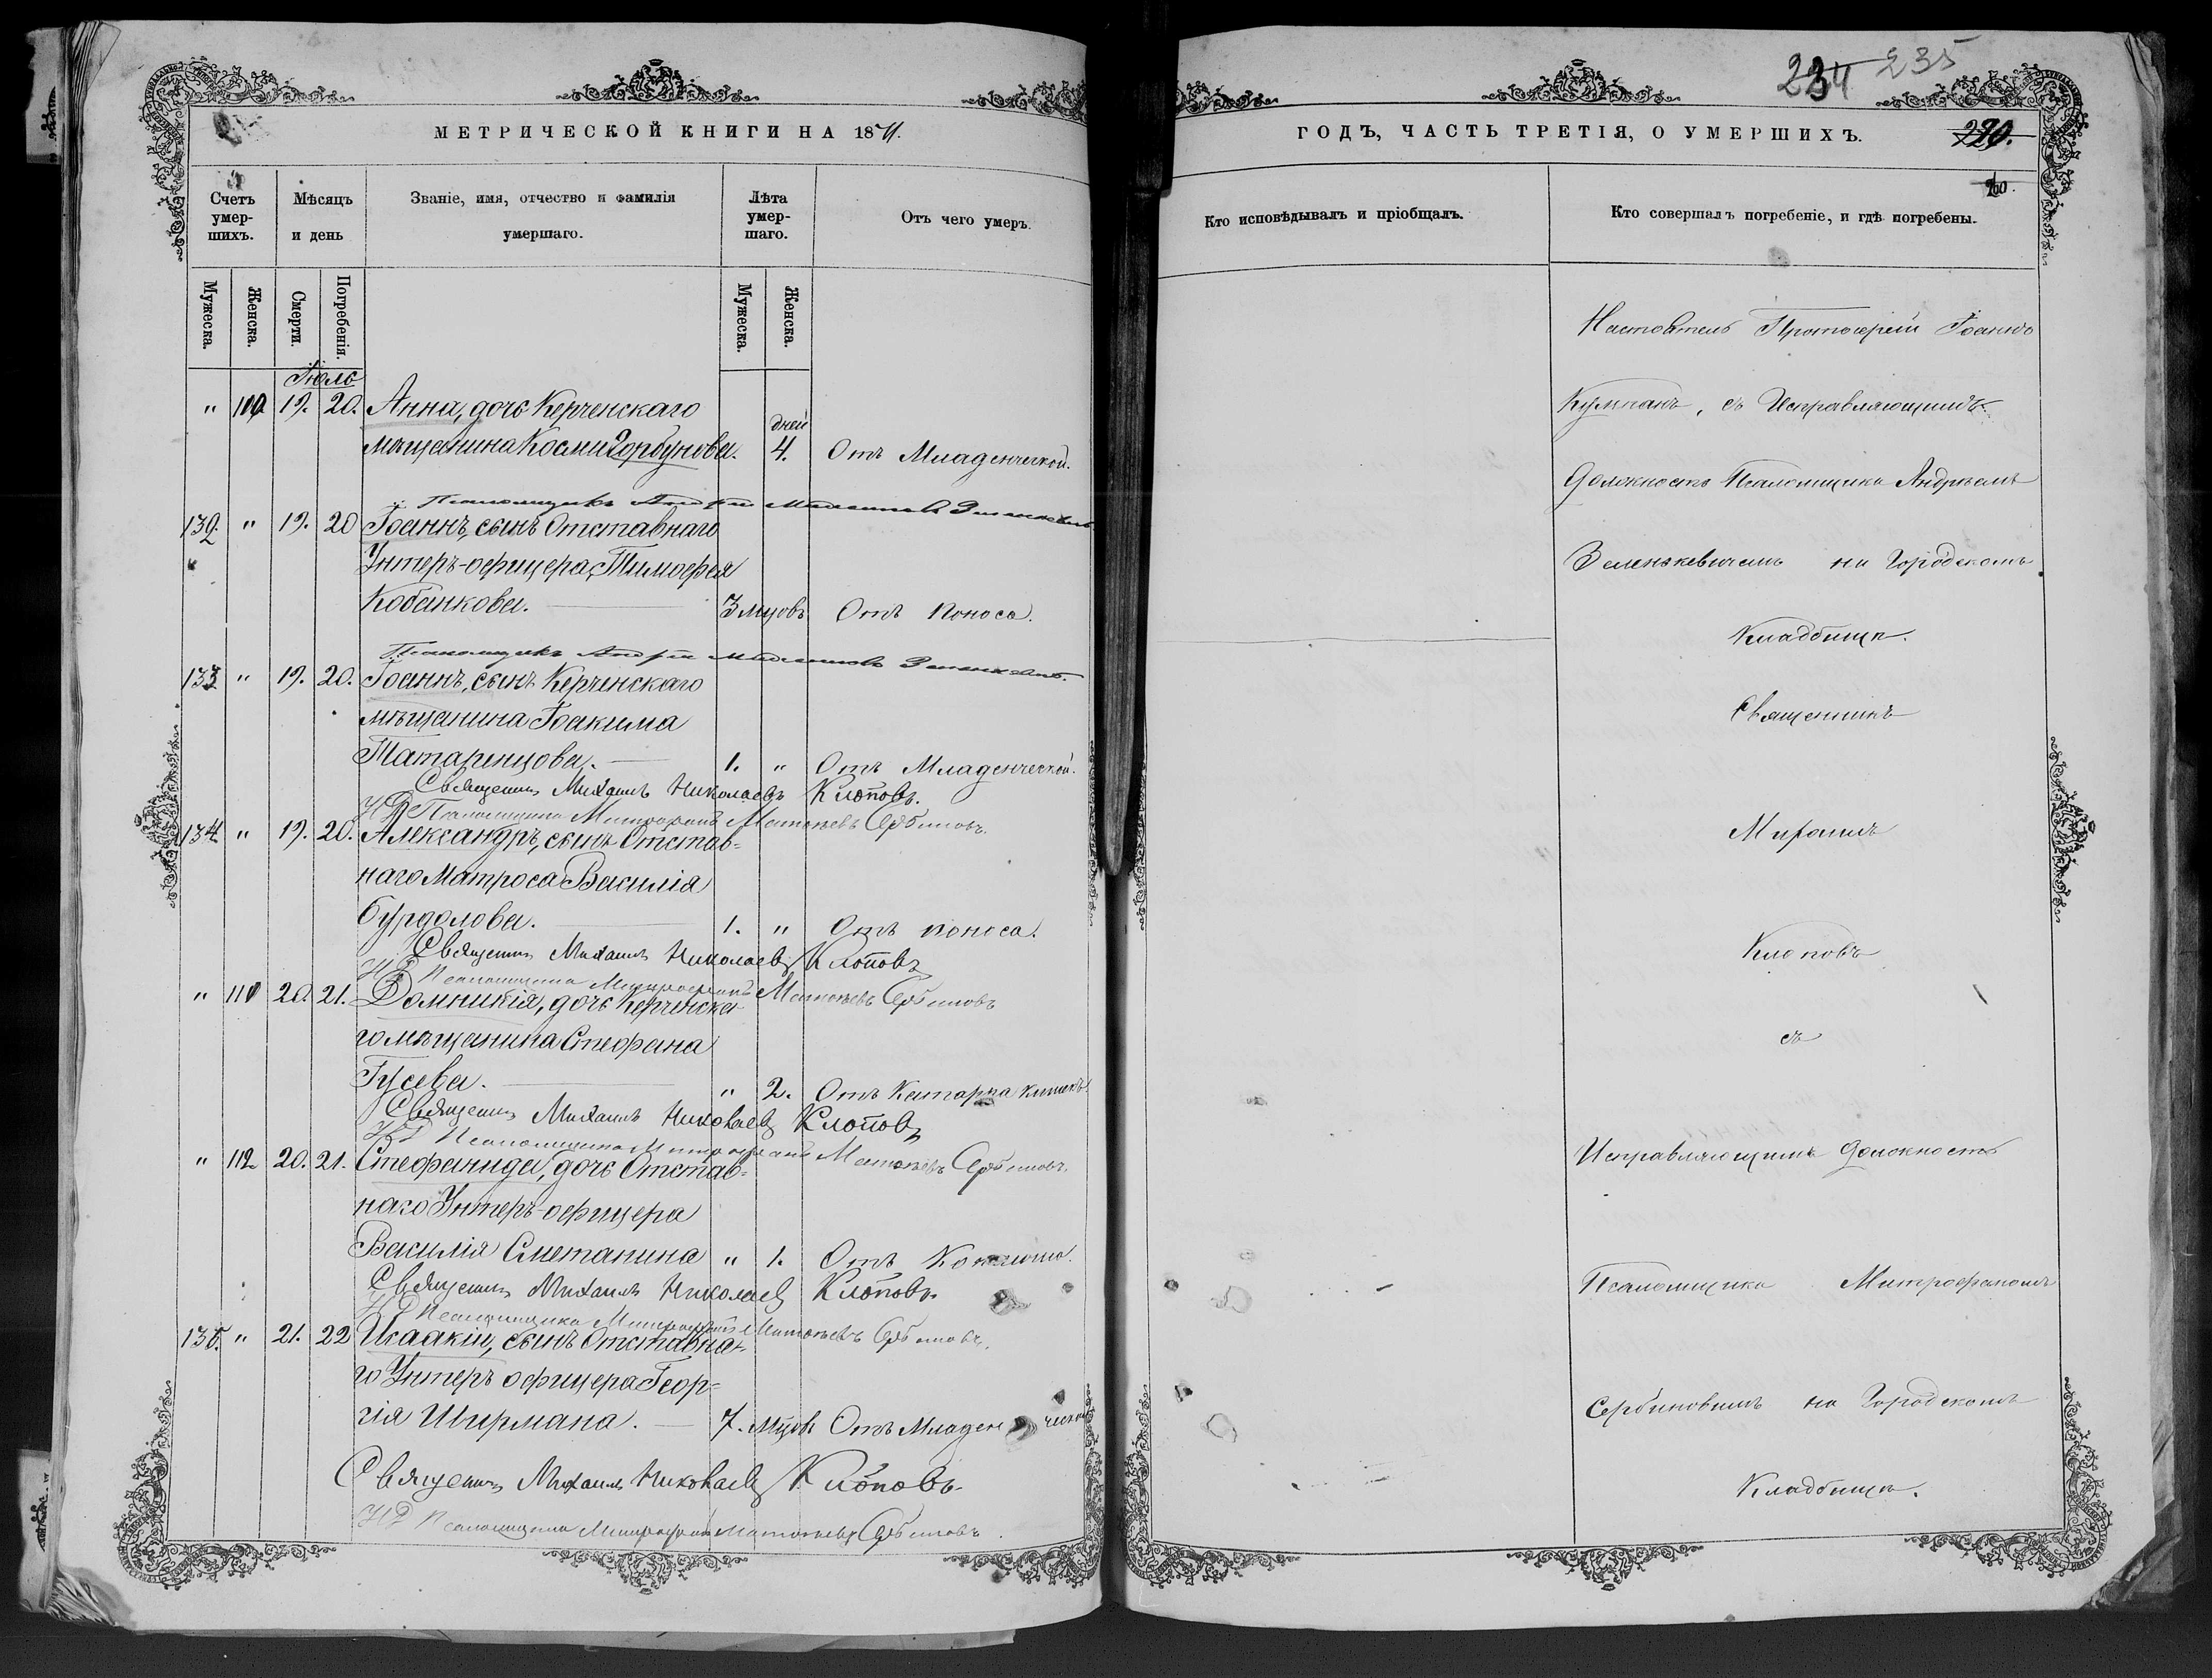 МЕТРИЧЕСКОЙ КНИГИ НА 1871.
Счетъ умер-шихъ.
Мѣсяцъ и день
Званіе, имя, отчество и фамилія умершаго.
Лѣта умер-шаго.
Отъ чего умеръ.
Мужеска.
Женска.
Смерти.
Погребенія.
Мужеска.
Женска.
Іюль
" 110 19. 20. Анна, дочь Керченскаго
дней
мѣщанина Космы Горбунова. 4. Отъ Младенческой.
Псаломщикъ
132. " 19. 20 Іоаннъ, сынъ Отставнаго
Унтеръ-офицера, Тимофея
Кобанкова. 3 мцовъ Отъ поноса.
Псаломщикъ
133 " 19. 20. Іоаннъ, сынъ Керченскаго
мѣщанина Іоакима
Татаринцова. 1. " Отъ Младенческой.
Священникъ Михаилъ Николаевъ Клоповъ.
ИД Псаломщика Митрофанъ Матвѣевъ Сербиновъ.
134 " 19. 20. Александръ, сынъ Отстав-
наго Матроса Василія
Бурдолова. 1. " Отъ поноса.
Священникъ Михаилъ Николаевъ Клоповъ
ИД Псаломщика Митрофанъ Матвѣевъ Сербиновъ
" 111 20. 21. Домникія, дочь Керченска-
го мѣщанина Стефана
Гусева. " 2. Отъ Катарра кишекъ.
Священникъ Михаилъ Николаевъ Клоповъ
ИД Псаломщика Митрофанъ Матвѣевъ Сербиновъ.
" 112 20. 21. Стефанида, дочь Отстав-
наго Унтеръ-офицера
Василія Сметанина " 1. Отъ Коклюша.
Священникъ Михаилъ Николаевъ Клоповъ.
ИД Псаломщика Митрофанъ Матвѣевъ Сербиновъ.
135. " 21. 22 Исаакій, сынъ Отставна-
го Унтеръ офицера Геор-
гія Ширмана. 7. Мцовъ Отъ Младенческой
Священникъ Михаилъ Николаевъ Клоповъ.
ИД Псаломщика Митрофанъ Матвѣевъ Сербиновъ
234 235
ГОДЪ, ЧАСТЬ ТРЕТІЯ, О УМЕРШИХЪ.
Кто исповѣдывалъ и пріобщалъ.
Кто совершалъ погребеніе, и гдѣ погребены.
Настоятель Протоіерей Іоаннъ
Кумпанъ, съ Исправляющимъ
должность Псаломщика Андреемъ
Зеленкевичемъ на Городскомъ
Кладбищѣ.
Священникъ
Михаилъ
Клоповъ
съ
Исправляющимъ должность
Псаломщика Митрофаномъ
Сербиновымъ на Городскомъ
Кладбищѣ.